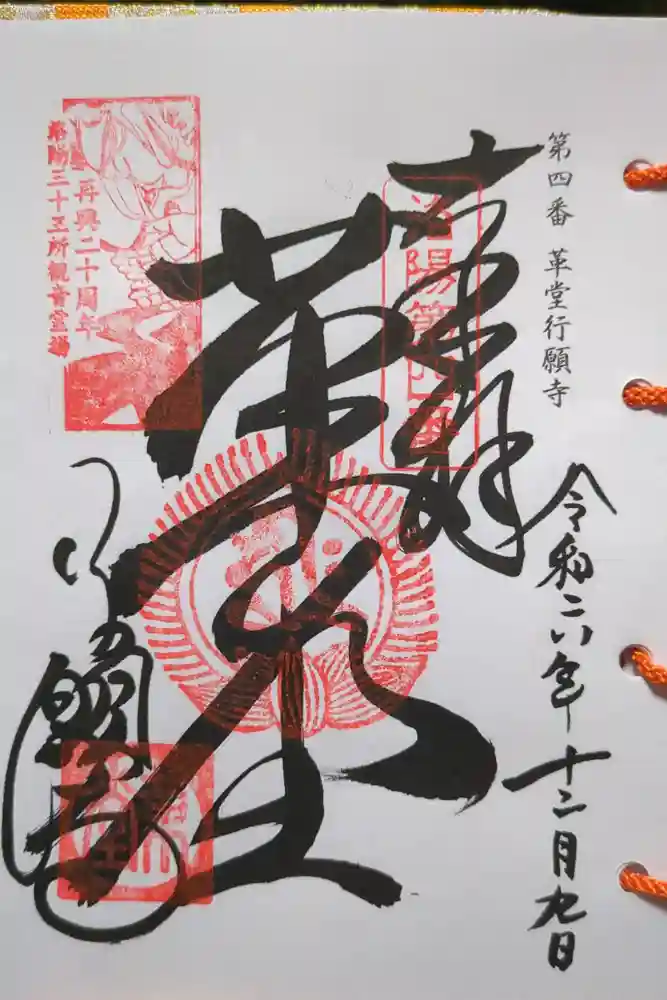 第四番 革堂行願寺
令和六年十二月九日
奉拝
洛陽第四番
革堂
再興二十周年
洛陽三十三所観音霊場
行願寺